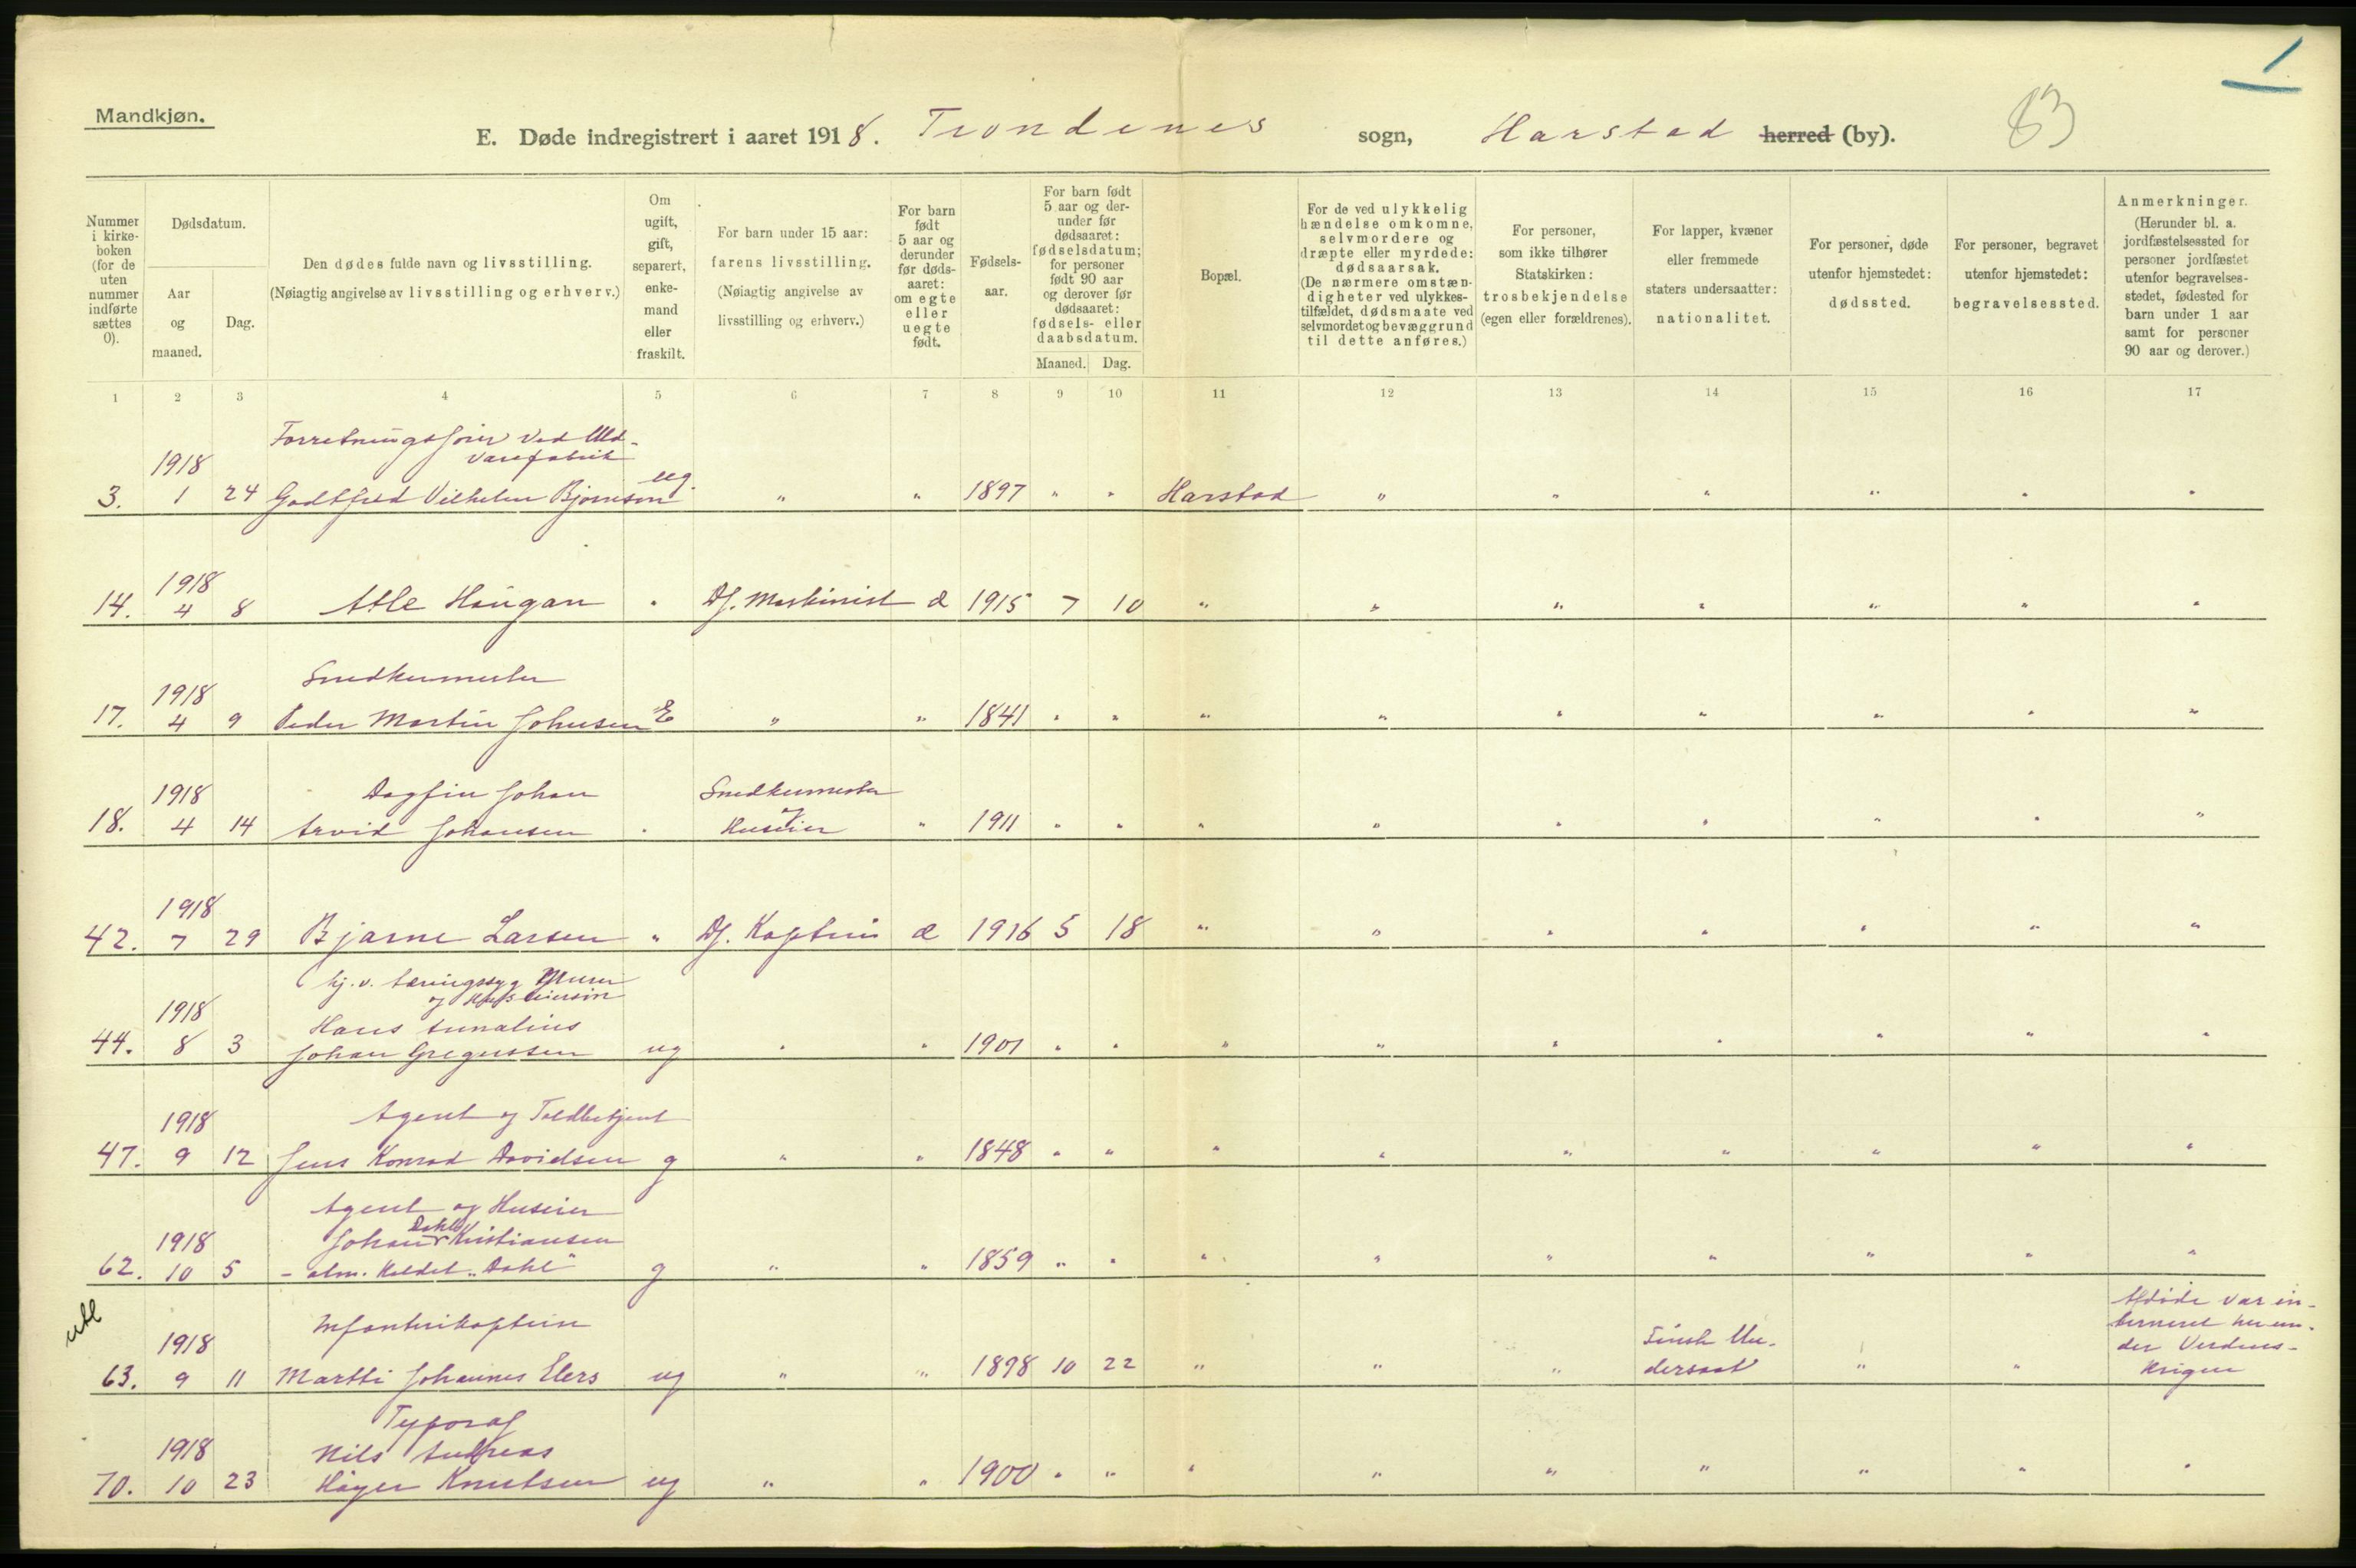 1
Mandkjøn.
E. Døde indregistrert i aaret 1918. Trondenes sogn, Harstad herred (by). 83
Nummer i kirke-boken (for de uten nummer indførte sættes 0).
Dødsdatum.
Aar og maaned.
Dag.
Den dødes fulde navn og livsstilling.
(Nøiagtig angivelse av livsstilling og erhverv.)
Om ugift, gift, separert, enke-mand eller fraskilt.
For barn under 15 aar: farens livsstilling. (Nøiagtig angivelse av livsstilling og erhverv.)
For barn født 5 aar og derunder før døds-aaret: om egte eller uegte født.
Fødsels-aar.
For barn født 5 aar og der-under før dødsaaret: fødselsdatum; for personer født 90 aar og derover før dødsaaret: fødsels- eller daabsdatum.
Maaned. Dag.
Bopæl.
For de ved ulykkelig hændelse omkomne, selvmordere og dræpte eller myrdede: dødsaarsak. (De nærmere omstæn-digheter ved ulykkes-tilfældet, dødsmaate ved selvmordet og bevæggrund til dette anføres.)
For personer, som ikke tilhører Statskirken: trosbekjendelse (egen eller forældrenes).
For lapper, kvæner eller fremmede staters undersaatter: nationalitet.
For personer, døde utenfor hjemstedet: dødssted.
For personer, begravet utenfor hjemstedet: begravelsessted.
Anmerkninger. (Herunder bl. a. jordfæstelsessted for personer jordfæstet utenfor begravelses-stedet, fødested for barn under 1 aar samt for personer 90 aar og derover.)
1 2 3 4 5 6 7 8 9 10 11 12 13 14 15 16 17
Forretningsfører ved Uld-
varefabrik
1918
3. 1 24 Godtfred Vilhelm Bjørnson ug. " " 1897 " " Harstad " " " " " "
1918
14. 4 8 Atle Haugan " Df. Maskinist æ 1915 7 10 " " " " " " "
Snedkermester
1918
17. 4 9 Peder Martin Johnsen E " " 1841 " " " " " " " " "
1918 Dagfin Johan Snedkermester
og
18. 4 14 Arvid Johansen " Huseier " 1911 " " " " " " " " "
1918
42. 7 29 Bjarne Larsen " Df. Kaptein æ 1916 5 18 " " " " " " "
hj. v. tæringssyg
og
1918 Hans
44. 8 3 Johan Gregussen ug " " 1901 " " " " " " " " "
Agent og Toldbetjent
1918
47. 9 12 Jens Konrad Davidsen g " " 1848 " " " " " " " " "
Agent og Huseier
Dahl
1918 Johan Kristiansen
62. 10 5 - alm. kaldet „Dahl" g " " 1859 " " " " " " " " "
utl
Infanterikaptein
1918
63. 9 11 Martti Johannes Elers ug " " 1898 10 22 " " " Finsk Un-
dersaat " "
Afdøde var in-
terneret her un-
der Verdens-
krigen
Typograf
1918 Nils Andreas
70. 10 23 Høyer Knutsen ug " " 1900 " " " " " " " " "